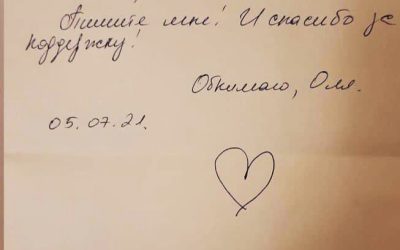 Пишите мне! И спасибо за
поддержку!
Обнимаю, Оля.
05.07.21.